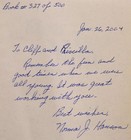 Book # 327 of 500
Jan. 26, 2004
To Cliff and Rosella
Remember the fun and
good times when we were
all young. It was great
working with you.
Best wishes,
Norman J.